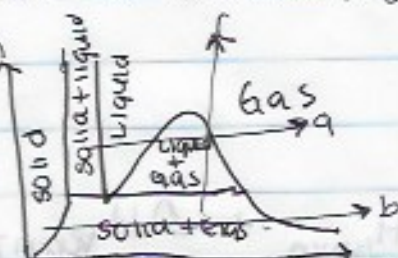 solid
solid+liquid
Liquid
f
Gas
a
Liquid
+
Gas
b
solid + Gas